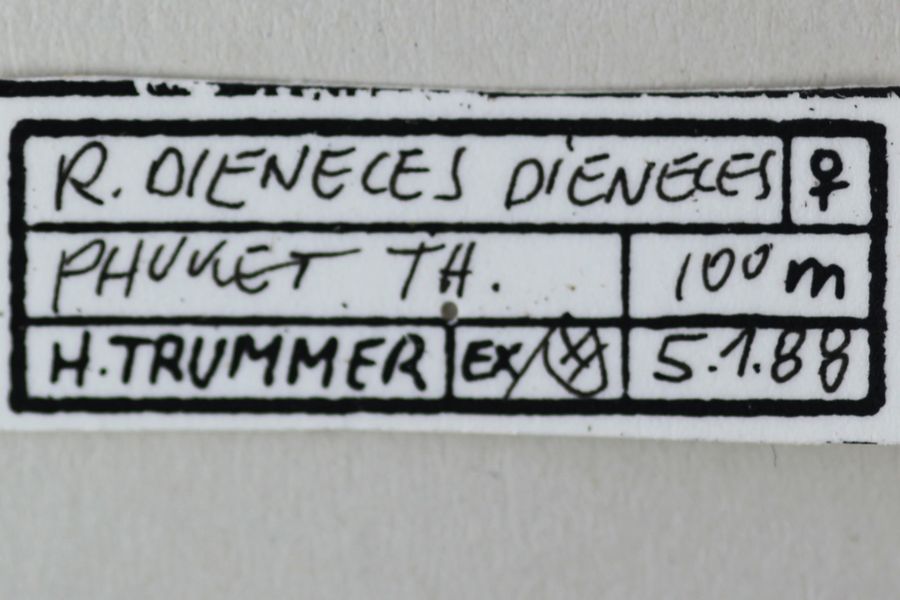 R. DIENECES DIENECES ♀
PHUKET TH. 100 m
H.TRUMMER EX/ 5.1.88